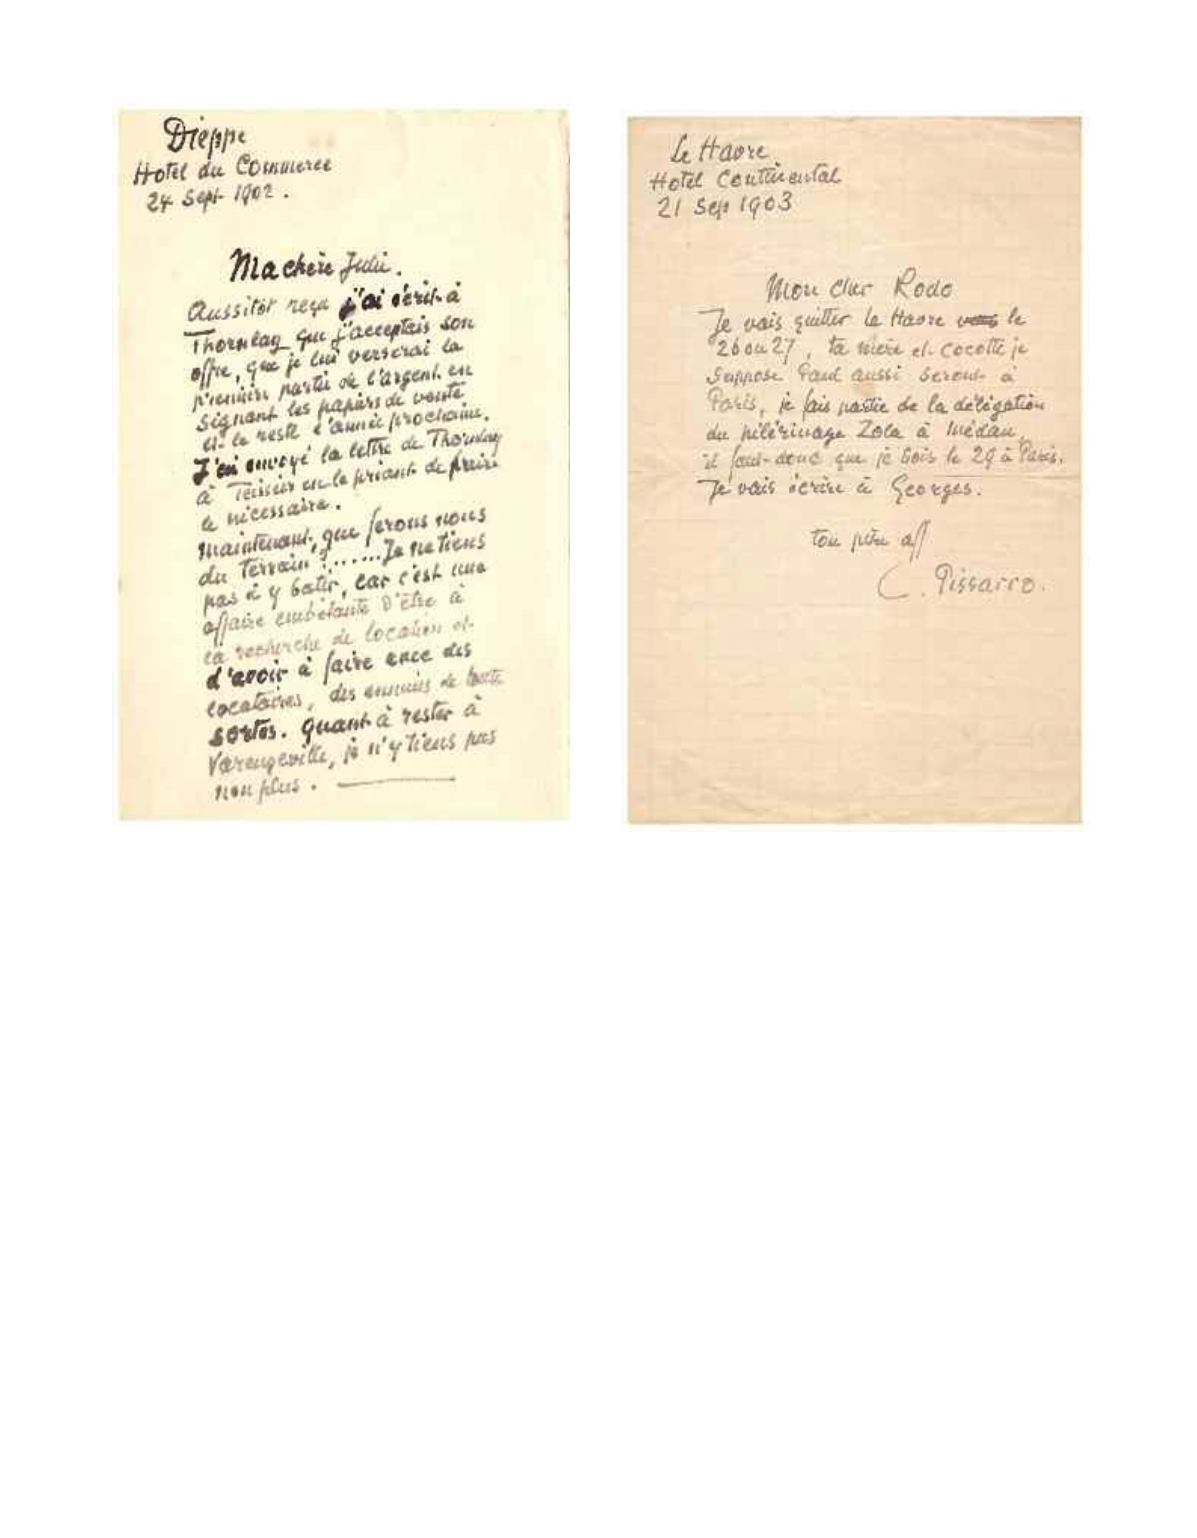 Dieppe
Hotel du Commerce
24 Sept 1902.
Ma chère Julie.
Aussitôt reçu j'ai écrit à
Thornley que j'acceptais son
offre, que je lui verserai la
première partie de l'argent en
signant les papiers de vente
et le reste l'année prochaine.
J'ai envoyé la lettre de Thornley
à Teissier en le priant de faire
le nécessaire.
Maintenant, que ferons nous
du terrain ?......Je ne tiens
pas à y batir, car c'est une
affaire embêtante d'être à
la recherche de location et
d'avoir à faire avec des
locataires, des ennuis de toute
sortes. Quant à rester à
Varengeville, je n'y tiens pas
non plus.
Le Havre
Hotel Continental
21 Sep 1903
Mon cher Rodo
Je vais quitter le Havre vers le
26 ou 27, ta mère et cocotte je
suppose Paul aussi seront à
Paris, je fais partie de la délégation
du pélérinage Zola à Médan,
il faut donc que je sois le 29 à Paris.
Je vais écrire à Georges.
ton père aff
C. Pissarro.